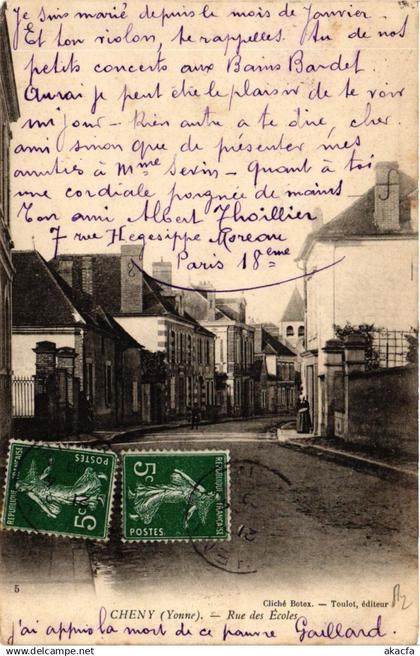 Je suis marié depuis le mois de Janvier.
Et ton violon, te rappelles Tu de nos
petits concerts aux Bains Bardet
Aurai je peut être le plaisir de te voir
un jour - Rien autre à te dire, cher
ami sinon que de présenter mes
amitiés à Mme Serin - Quant à toi
une cordiale poignée de mains
Ton ami Albert Thoillier
7 rue Hegesippe Moreau
Paris 18ème
5c
POSTES
RÉPUBLIQUE FRANÇAISE
5c
5
Cliché Botex. - Toulot, éditeur
CHENY (Yonne). - Rue des Écoles
j'ai appris la mort de ce pauvre Gaillard.
www.akacfa.com